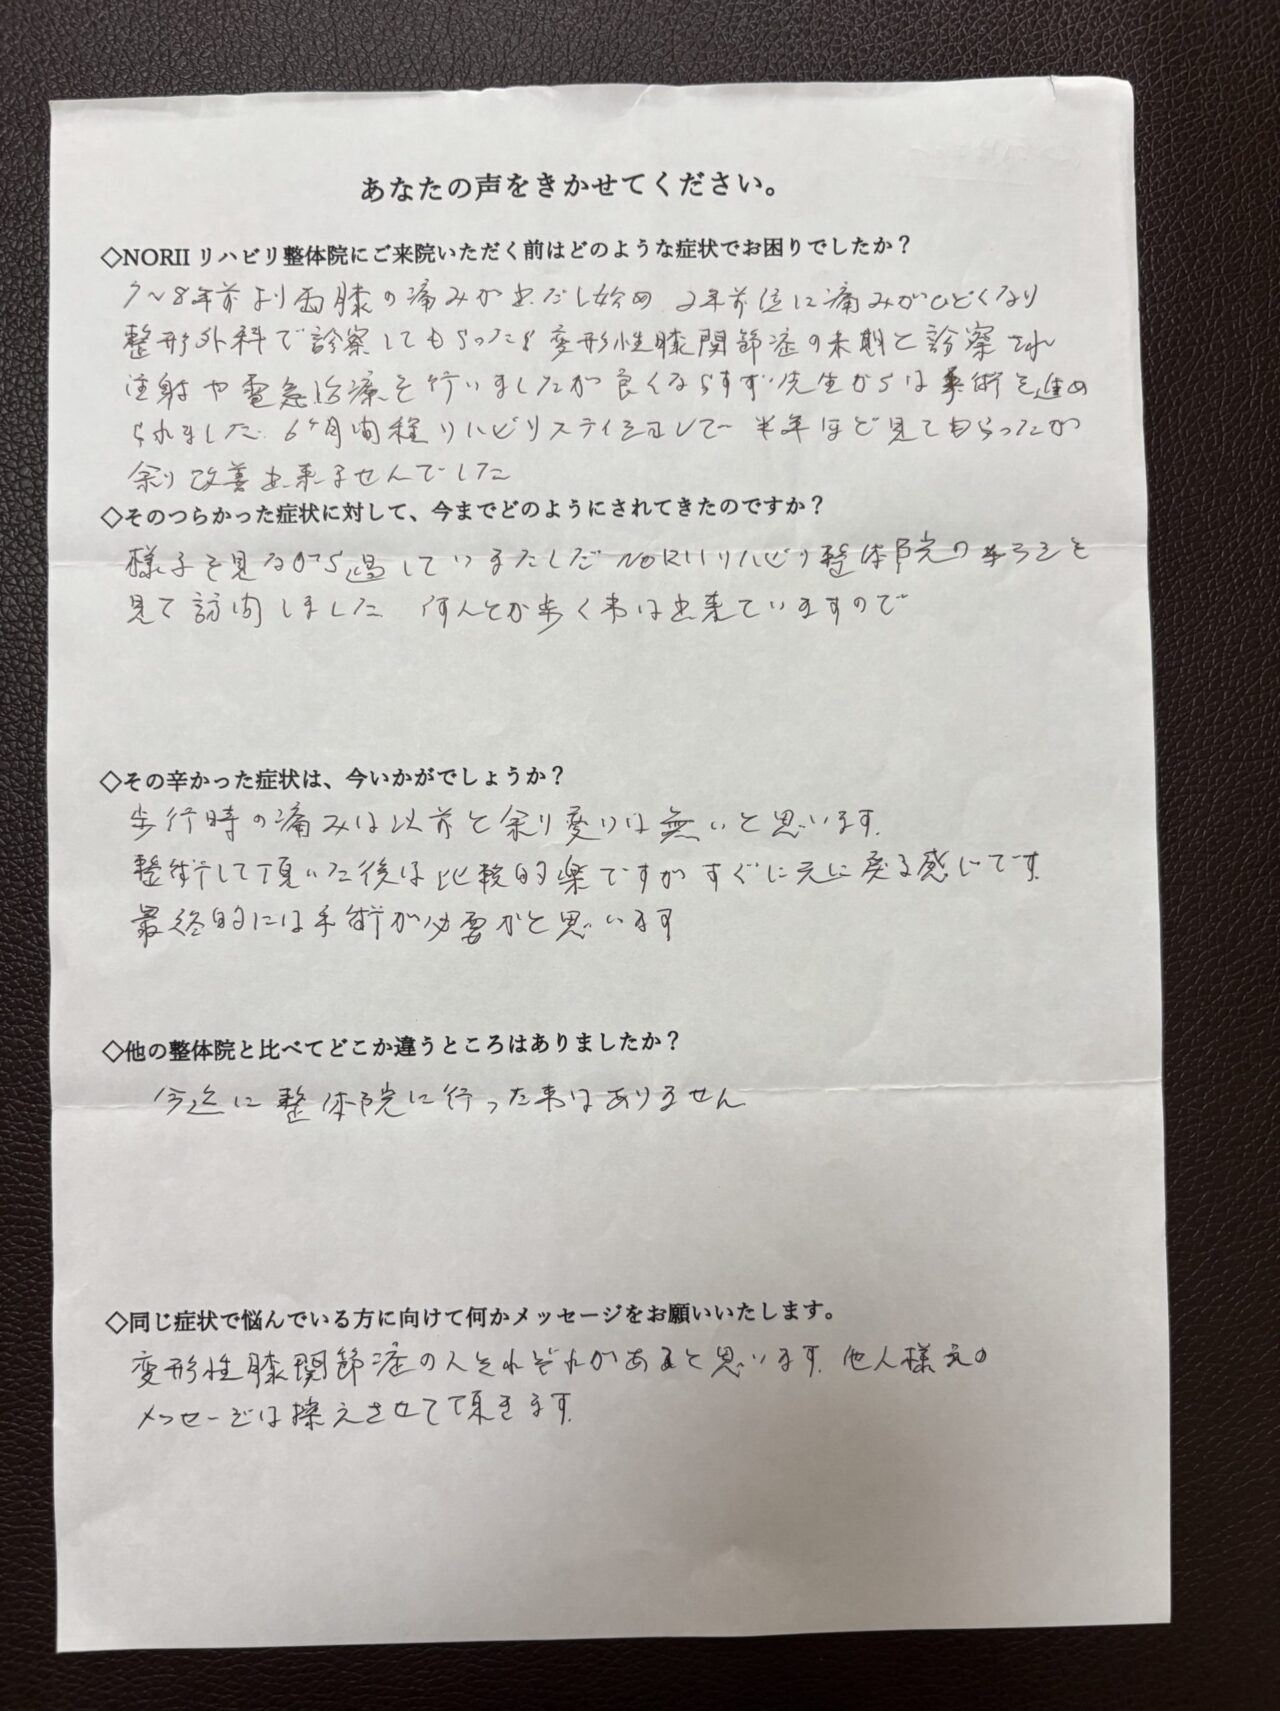 あなたの声をきかせてください。
◇NORII リハビリ整体院にご来院いただく前はどのような症状でお困りでしたか？
7～8年前より両膝の痛みが出だし始め 2年前位に痛みがひどくなり
整形外科で診察してもらったら変形性膝関節症の末期と診察され
注射や電気治療を行いましたが良くならすず 先生からは手術を進め
られました 6ヶ月間程リハビリ 半年ほど見てもらったが
余り改善出来ませんでした
◇そのつらかった症状に対して、今までどのようにされてきたのですか？
様子を見ながら過していま NORIIリハビリ整体院の を
見て訪問しました 何んとか歩く事は出来ていますので
◇その辛かった症状は、今いかがでしょうか？
歩行時の痛みは以前と余り変りは無いと思います.
整術して頂いた後は比較的楽ですがすぐに元に戻る感じです.
最終的には手術が必要かと思います
◇他の整体院と比べてどこか違うところはありましたか？
今迄に整体院に行った事はありません
◇同じ症状で悩んでいる方に向けて何かメッセージをお願いいたします。
変形性膝関節症の人それぞれがあると思います. 他人様えの
メッセージは控えさせて頂きます.